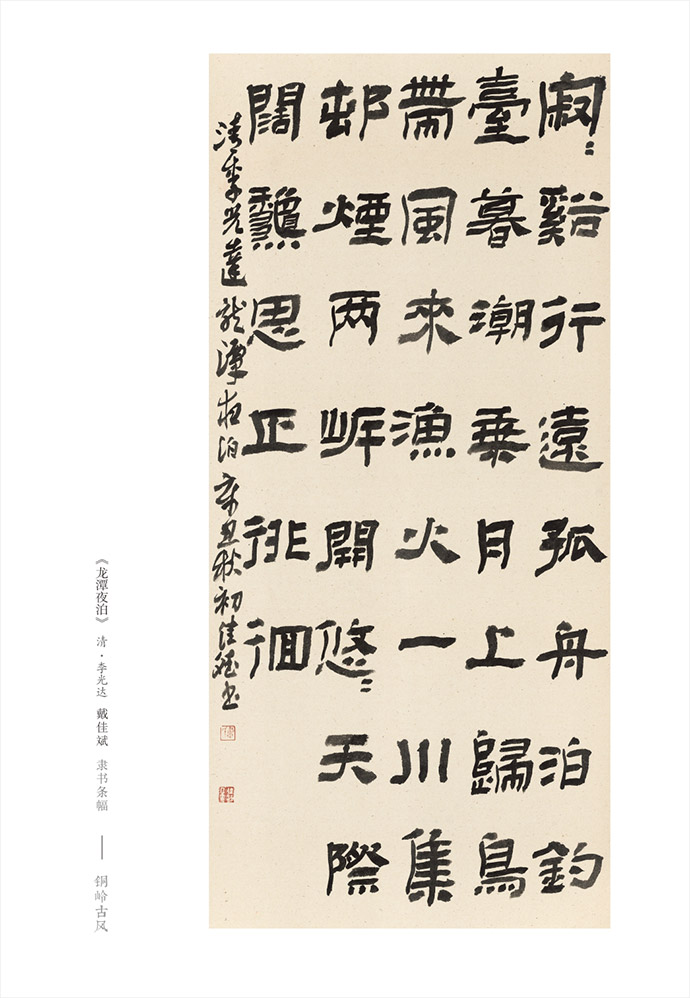 寂〻谿行遠孤舟泊釣
臺暮潮乗月上歸鳥
帶風來漁火一川集
邨煙两岸開悠〻天際
闊龝思正徘徊
清李光達龍潭夜泊辛丑秋初佳斌书
《龙潭夜泊》 清·李光达 戴佳斌 隶书条幅 —— 铜岭古风